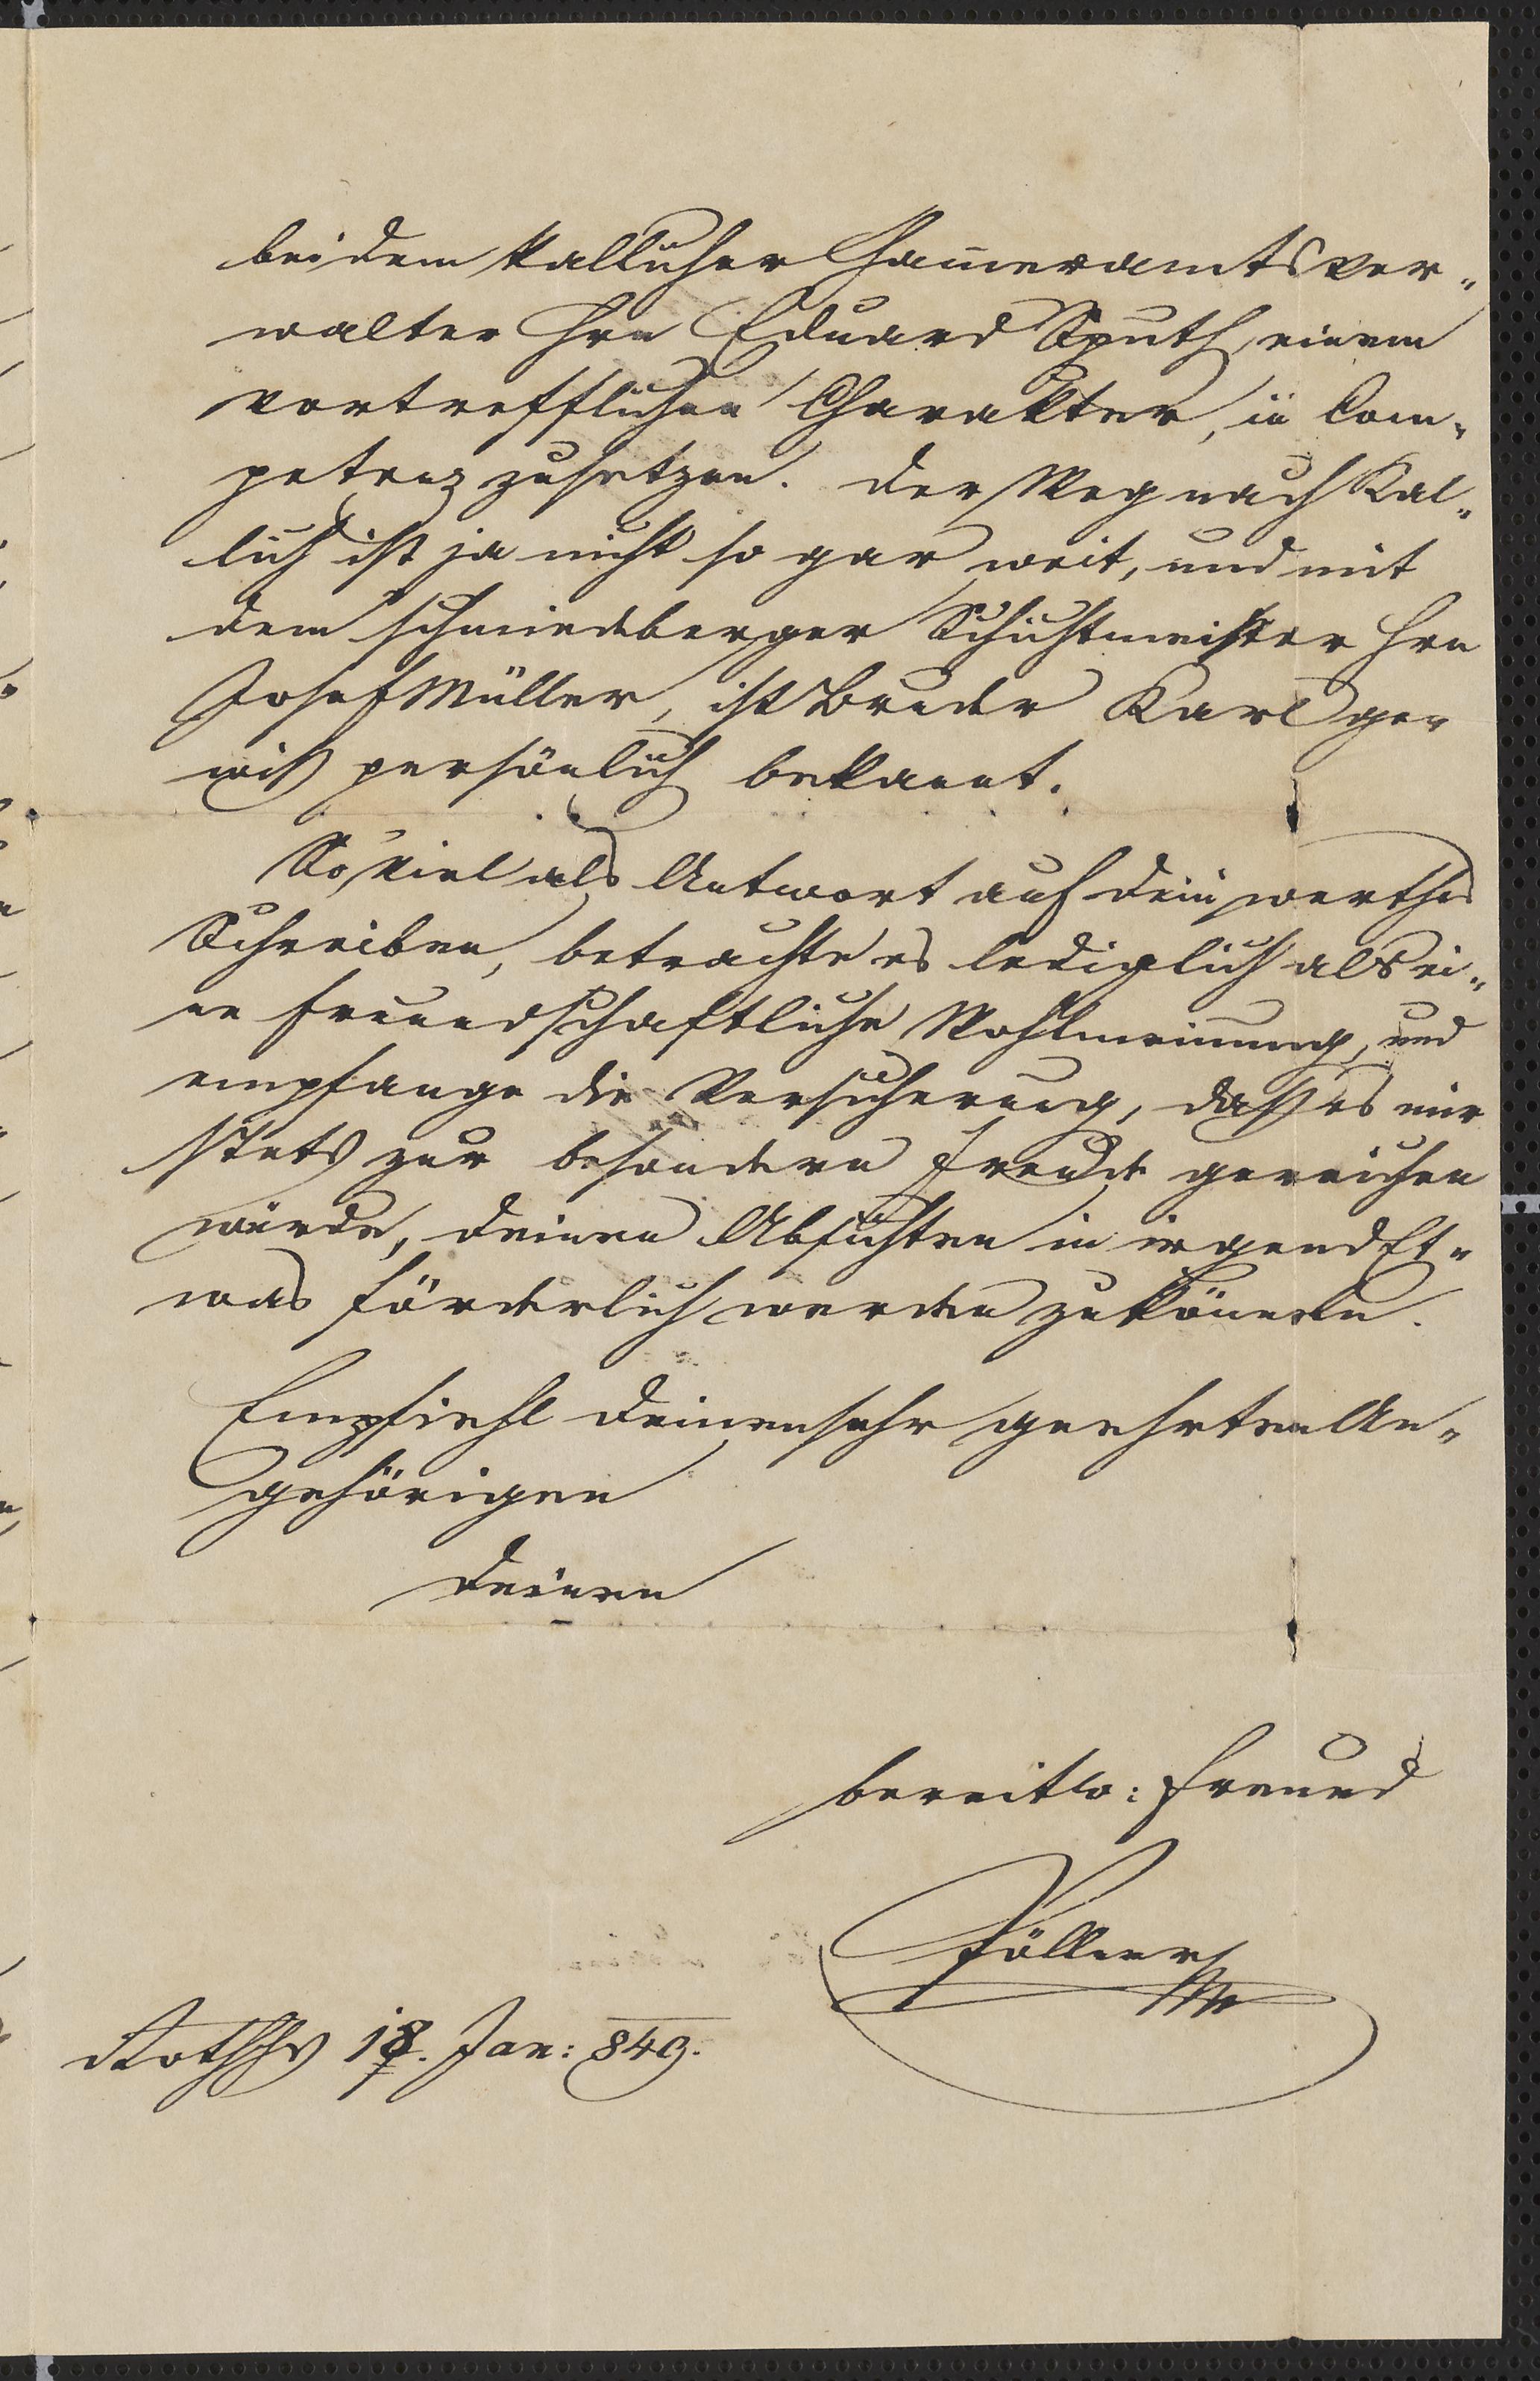 bei dem Kallicher Ham̄eramtsver„
walter Hrn Eduard Sputh, einem
vortrefflichen Charakter, in Com„
petenz zusetzen. Der Weg nach Kal„
lich ist ja nicht so gar weit, und mit
dem schmiedeberger Schichtmeister Hrn
Josef Müller, ist Bruder Karl ge„
wiß persönlich bekannt.
So viel als Antwort auf dein werthes
Schreiben, betrachte es lediglich als ei„
ne freundschaftliche Wohlmeinung, und
empfange die Versicherung, daß es mir
stets zur besondern Freude gereichen
würde, deinen Absichten in irgend Et„
was förderlich werden zu können.
Empfiehl deinen sehr geehrten An„
gehörigen
deinen
bereitw: Freund
Föllner
Rothhs 18. Jan: 849.